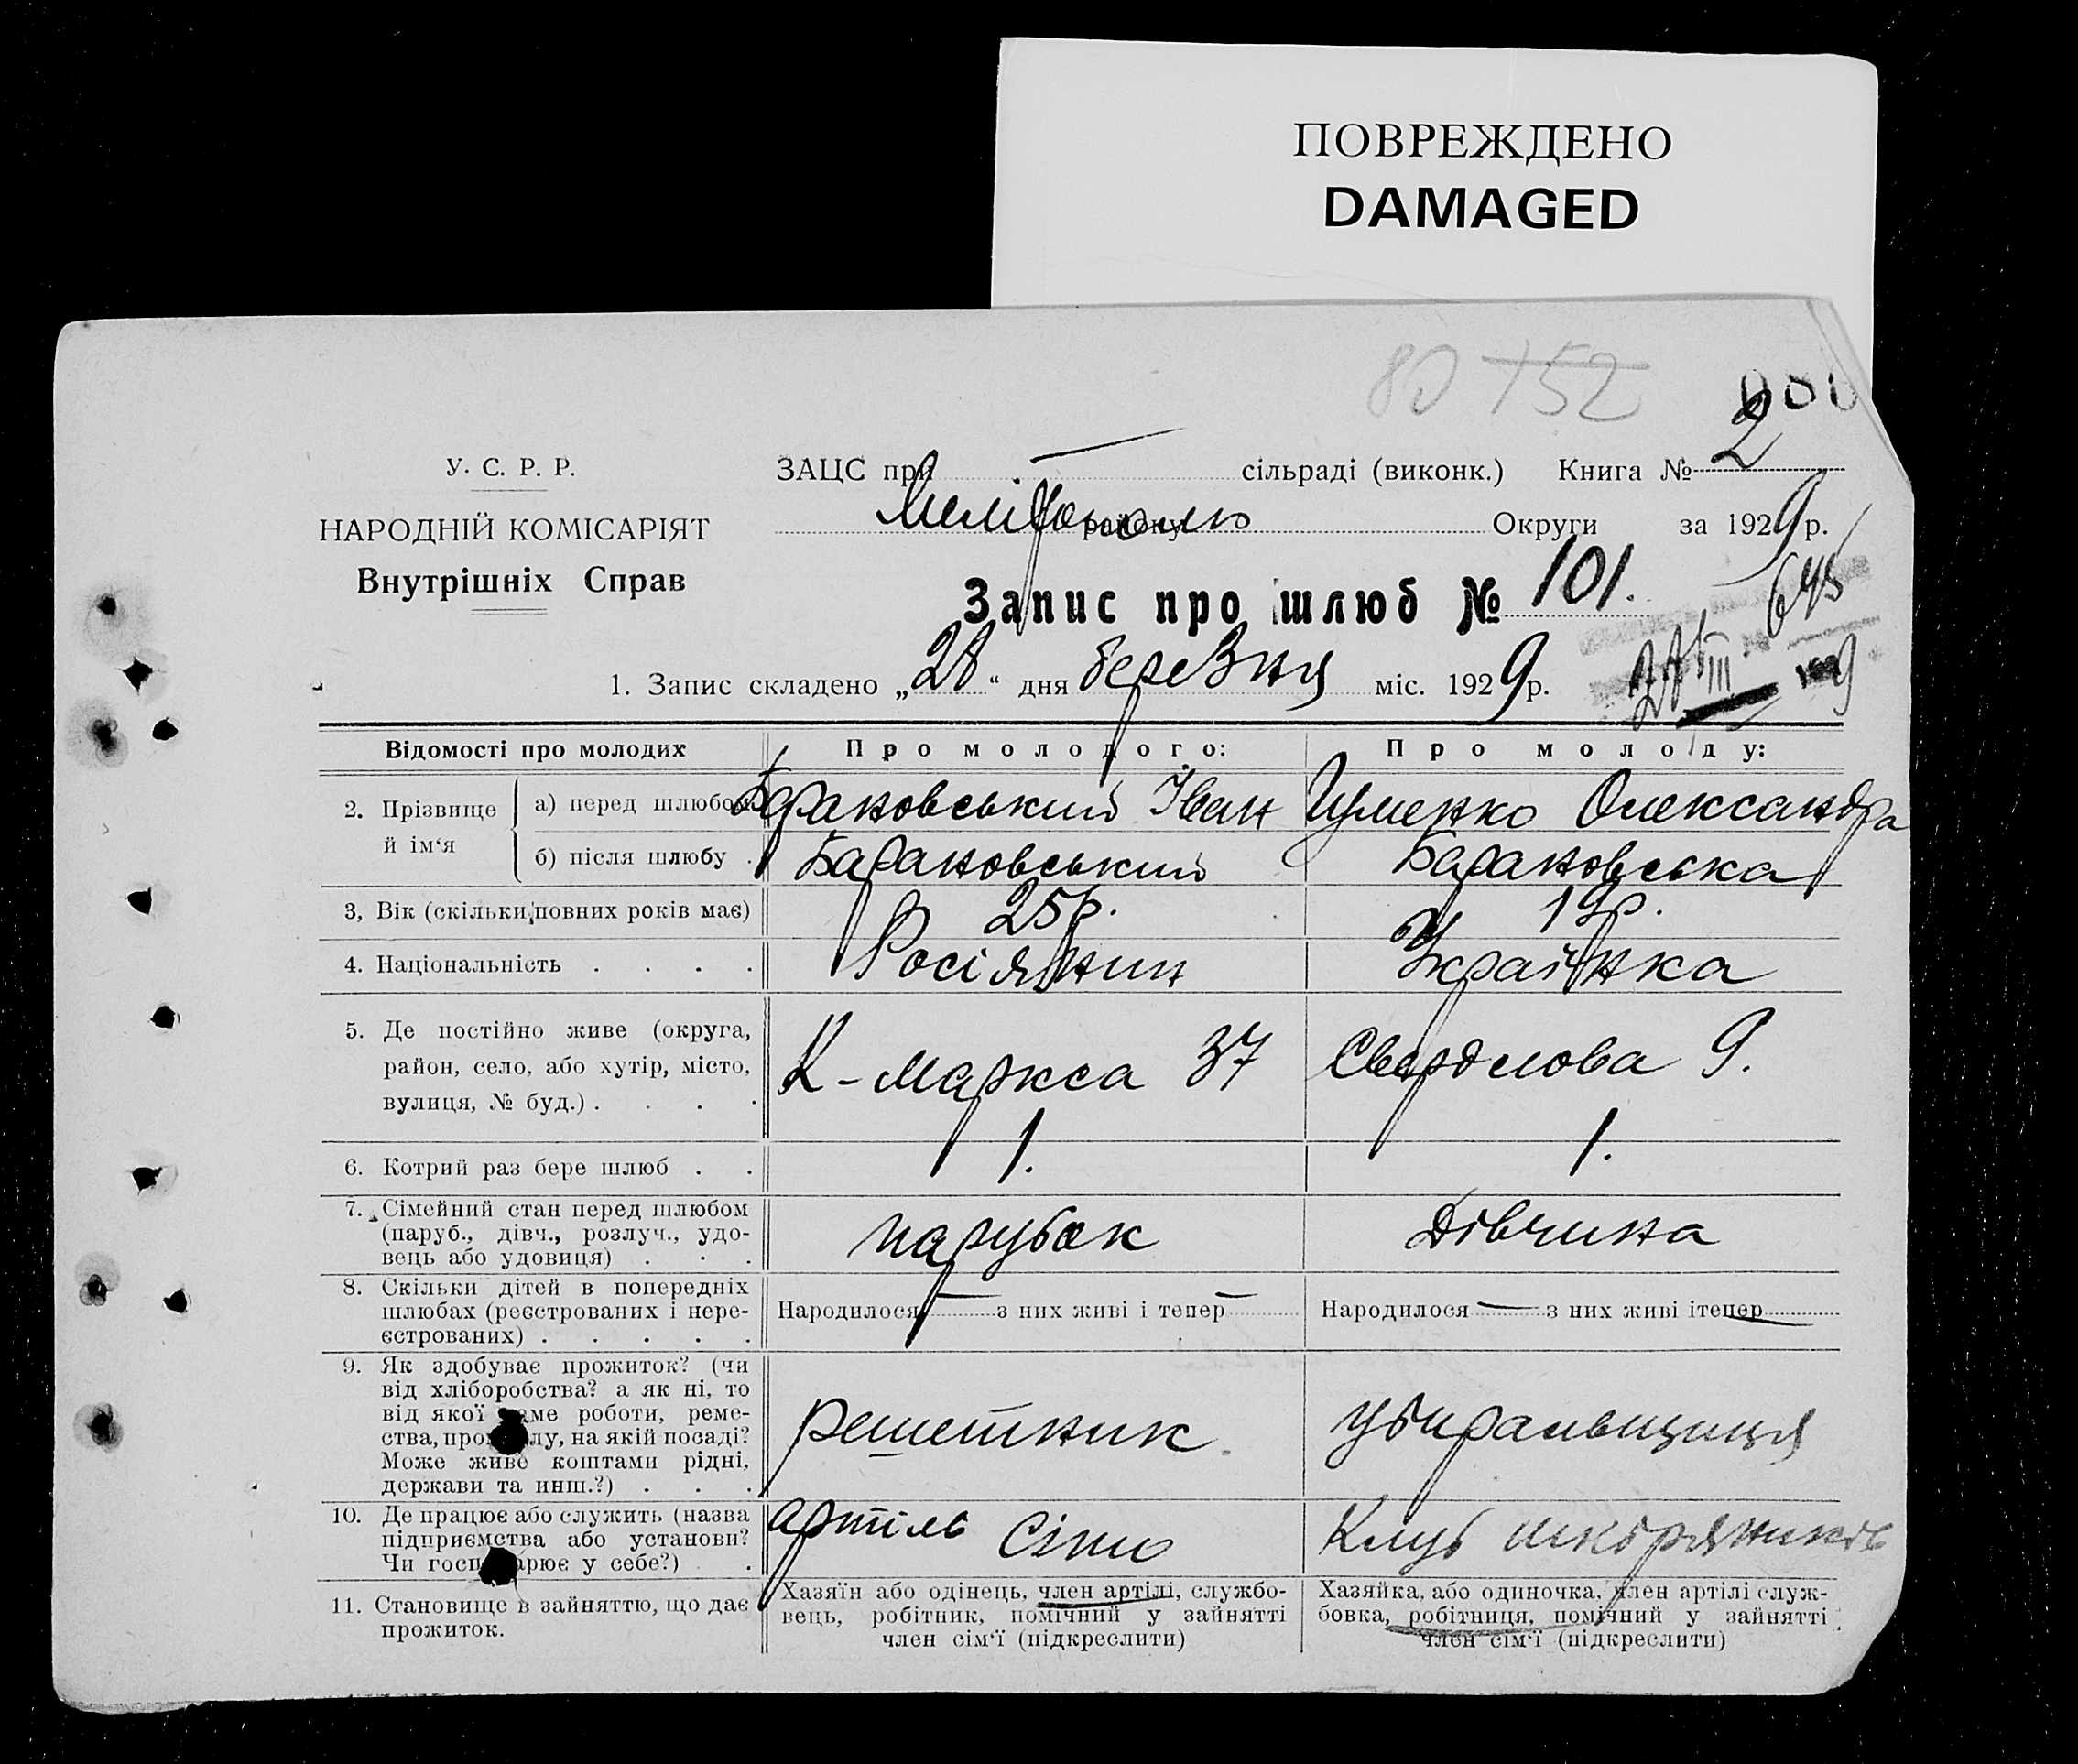 ПОВРЕЖДЕНО
DAMAGED
80 152
У. С. Р. Р.
НАРОДНІЙ КОМІСАРІЯТ
Внутрішніх Справ
ЗАЦС при — сільраді (виконк.) Книга № 2
Мелітополь району Округи за 1929 р.
Запис про шлюб № 101.
1. Запис складено „28“ дня березня міс. 1929 р.
Відомості про молодих
Про молодого:
Про молоду:
2. Прізвище й ім‘я
а) перед шлюбом
Барановський Іван
Олександра
б) після шлюбу .
Барановський
Барановська
3, Вік (скільки повних років має)
25 р.
19 р.
4. Національність . . . .
Росіянин
Українка
5. Де постійно живе (округа,
район, село, або хутір, місто,
вулиця, № буд.) . . . .
К-Маркса 37
Свердлова 9.
6. Котрий раз бере шлюб . .
1.
1.
7. Сімейний стан перед шлюбом
(паруб., дівч., розлуч., удо-
вець або удовиця) . . .
парубок
Дівчина
8. Скільки дітей в попередніх
шлюбах (реєстрованих і нере-
єстрованих) . . . . .
Народилося — з них живі і тепер —
Народилося — з них живі ітепер —
9. Як здобуває прожиток? (чи
від хліборобства? а як ні, то
від якої саме роботи, реме-
ства, промислу, на якій посаді?
Може живе коштами рідні,
держави та инш.?) . . .
решетник
убиральщиця
10. Де працює або служить (назва
підприємства або установи?
Чи господарює у себе?) .
артіль Сіто
Клуб шкіряників
11. Становище в зайняттю, що дає
прожиток.
Хазяїн або одінець, член артілі, службо-
вець, робітник, помічний у зайнятті
член сім‘ї (підкреслити)
Хазяйка, або одиночка, член артілі служ-
бовка, робітниця, помічний у зайнятті
член сім‘ї (підкреслити)